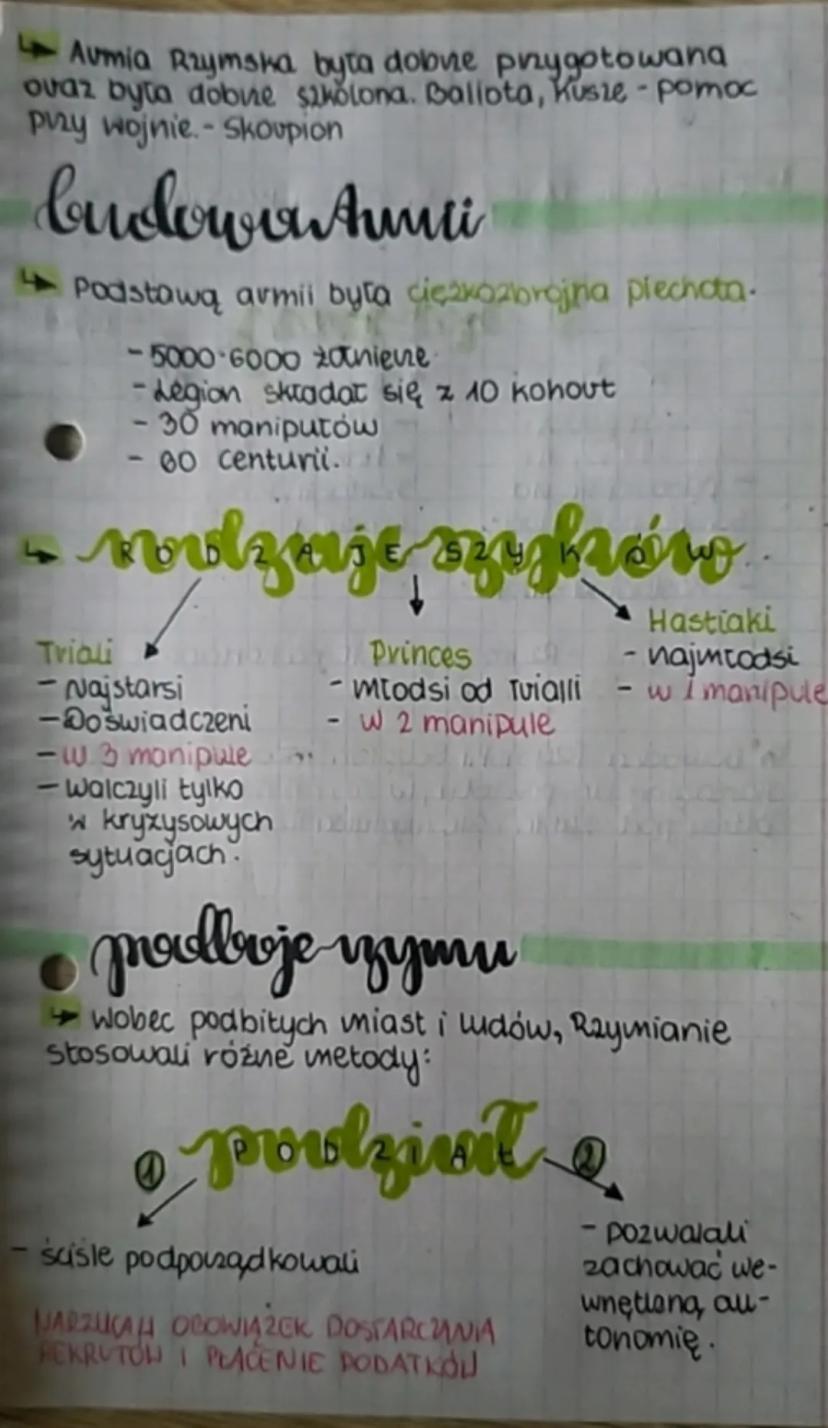 ↳ Armia Rzymska była dobrze przygotowana
oraz była dobrze szkolona. Ballota, Kusze - pomoc
przy wojnie. - Skorpion
budowa Armii
↳ Podstawą armii była ciężkozbrojna piechota.
- 5000-6000 żołnierze
- Legion składał się z 10 kohort
- 30 manipułów
- 60 centurii.
↳ rodzaje szyków
RODZAJE SZYKÓW
Triali
- Najstarsi
- Doświadczeni
- w 3 manipule
- walczyli tylko
w kryzysowych
sytuacjach.
Princes
- młodsi od Trialli
- w 2 manipule
Hastiaki
- najmłodsi
- w 1 manipule
podboje rzymu
↳ Wobec podbitych miast i ludów, Rzymianie
stosowali różne metody:
① podział ②
PODZIAŁ
- ściśle podporządkowali
NARZUCALI OBOWIĄZEK DOSTARCZANIA
REKRUTÓW I PŁACENIE PODATKÓW
- pozwalali
zachować we-
wnętrzną au-
tonomię.